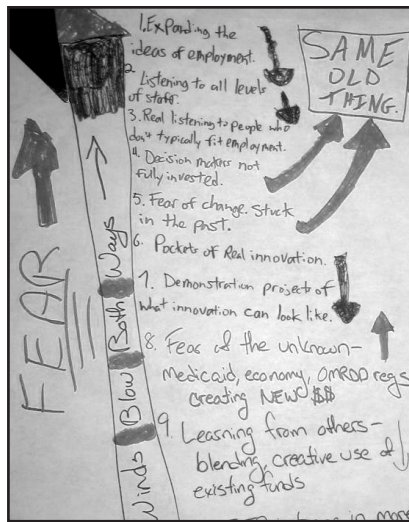 1. Expanding the
ideas of employment.
2. Listening to all levels
of staff.
3. Real listening to people who
don't typically fit employment.
4. Decision makers not
fully invested.
5. Fear of change. Stuck
in the past.
6. Pockets of Real innovation.
7. Demonstration projects of
what innovation can look like.
8. Fear of the unknown-
medicaid, economy, OMRDD regs
creating NEW $$
9. Learning from others-
blending, creative use of
existing funds
SAME
OLD
THING.
FEAR
Winds Blow Both Ways